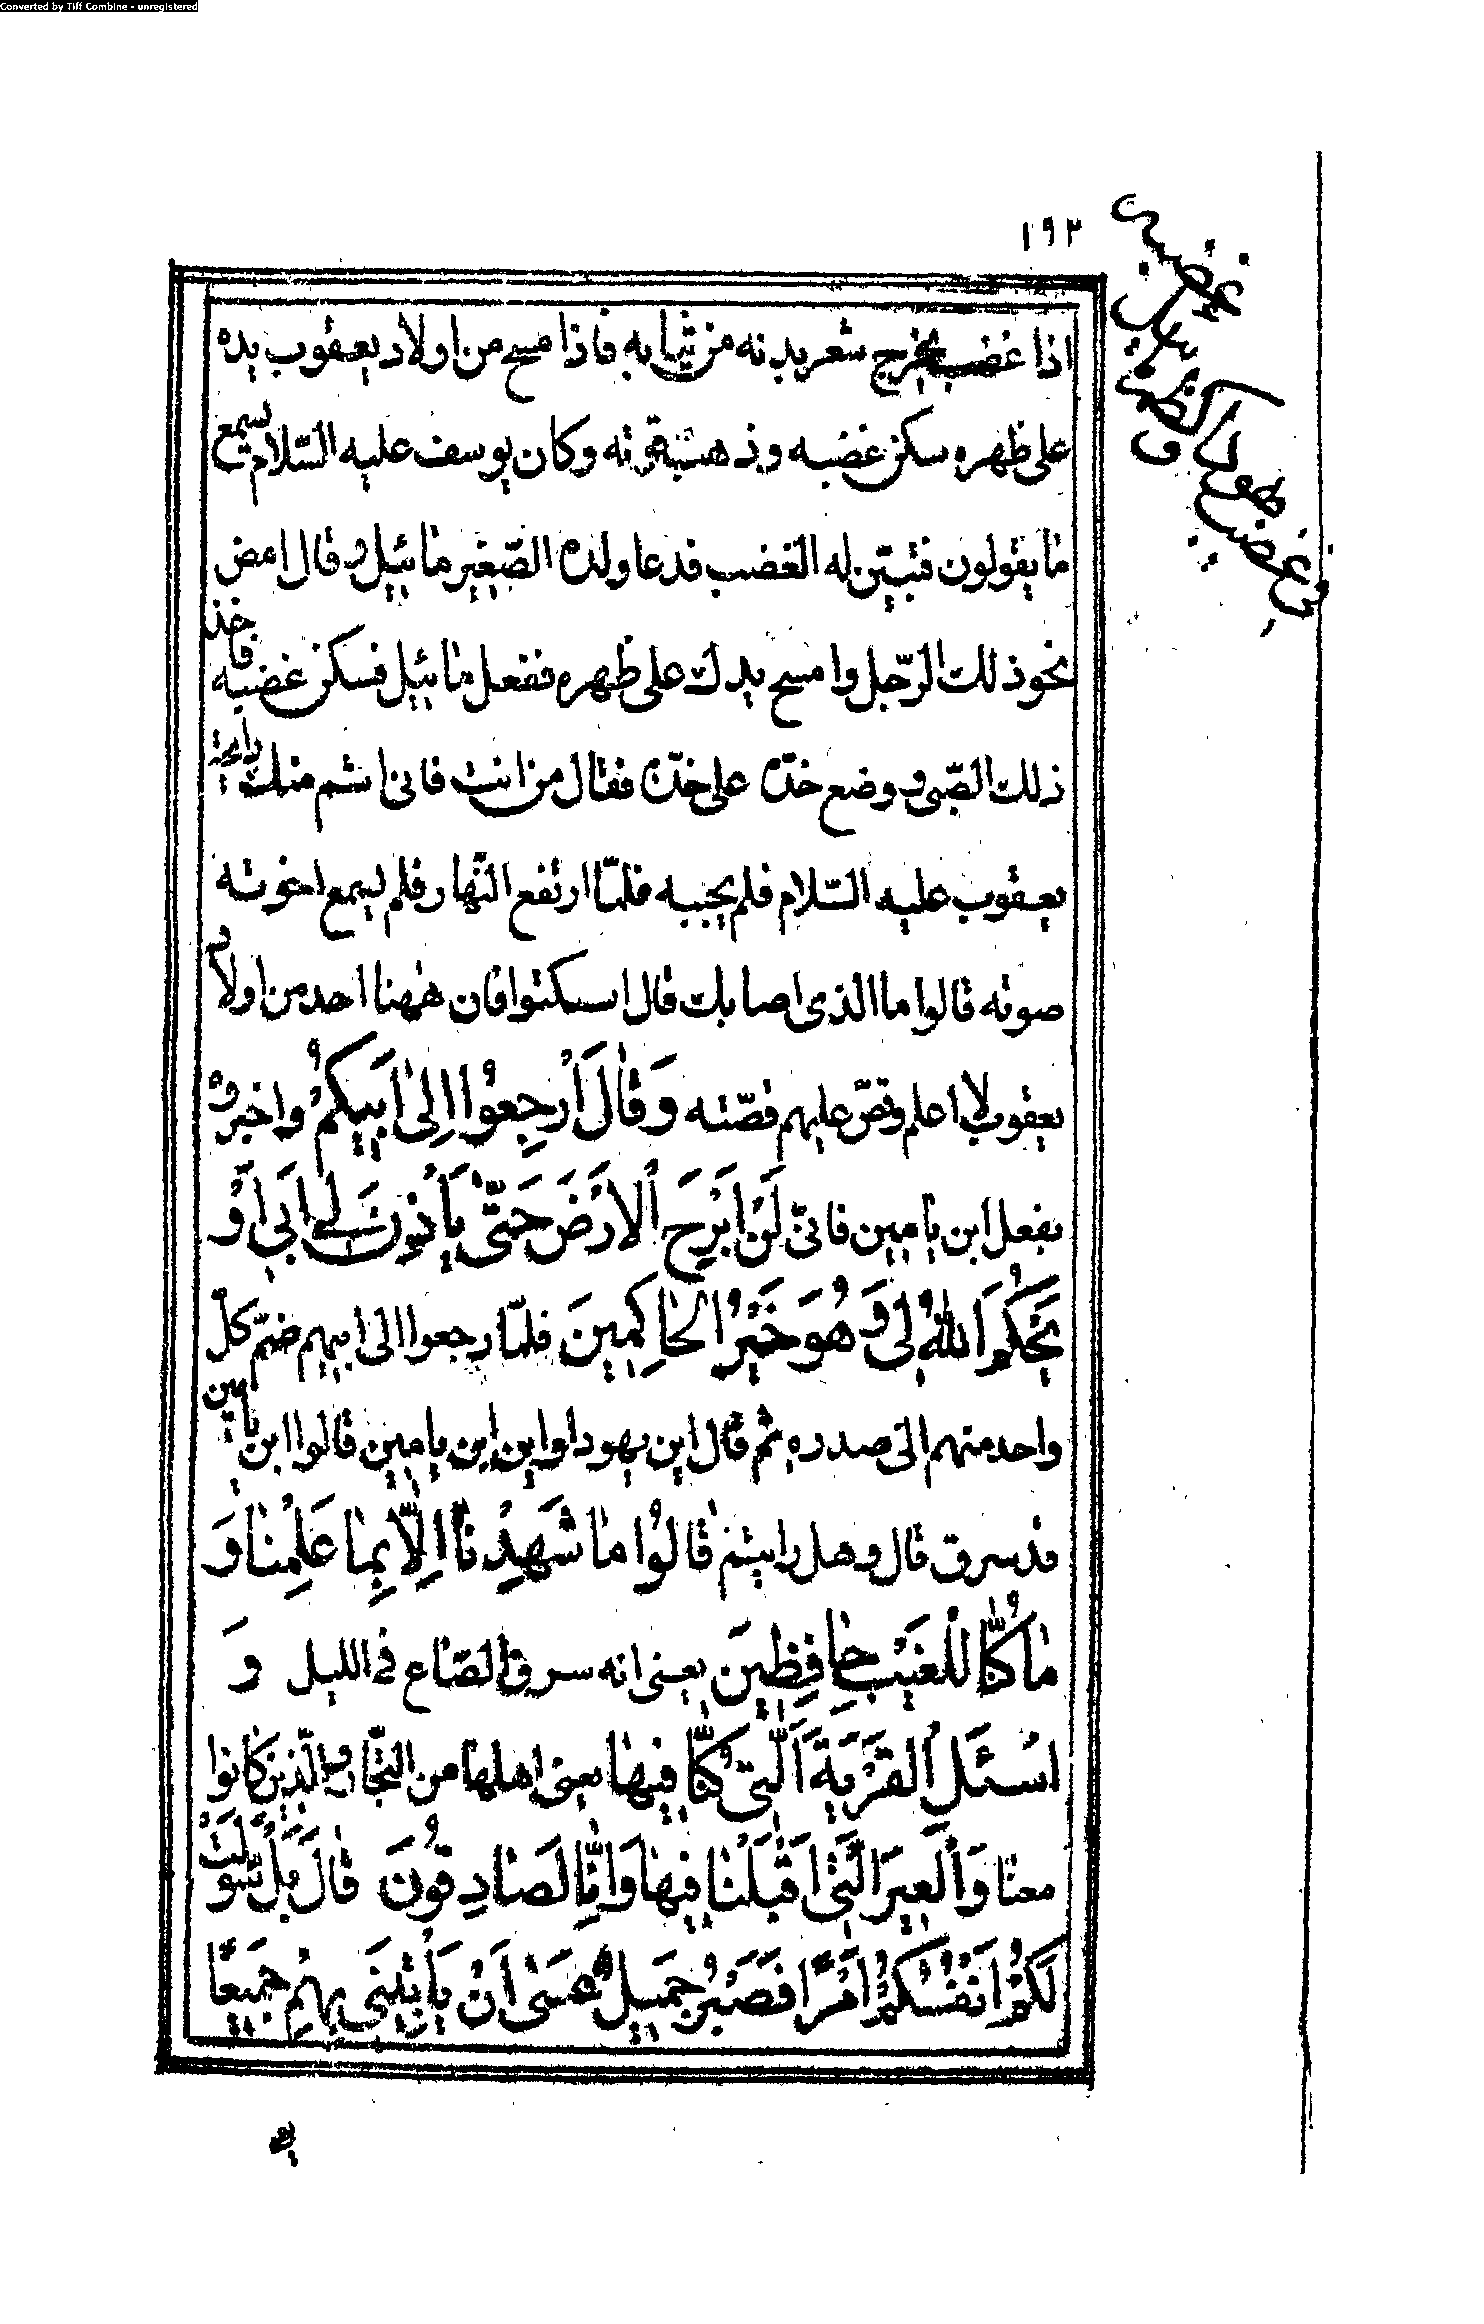 Converted by Tiff Combine - unregistered
١٩٣
اذا غضب يخرج شعر بدنه من ثيابه فاذا مسح من اولاد يعقوب يده
على ظهره سكن غضبه وذهبت قوته وكان يوسف عليه السّلام يسمع
ما يقولون فتبيّن له الغضب فدعا ولده الصّغير مائيل وقال امض
نحو ذلك الرّجل وامسح يدك على ظهره ففعل مائيل فسكن غضبه فاخذ
ذلك الصّبى ووضع خدّه على خدّه فقال من انت فانى اشم منك رايحة
يعقوب عليه السّلام فلم يجبه فلمّا ارتفع النّهار فلم يسمع اخوته
صوته قالوا ما الذى اصابك قال اسكتوا فان ههنا احد من اولاد
يعقوب لا اعلم وقصّ عليهم قصّته وَقَالَ اَرْجِعُوا اِلىٰ اَبيكُمْ واخبروه
بفعل ابن يامين فانّى لَنْ اَبْرَحَ الْاَرْضَ حَتّىٰ يَأْذَنَ لى اَبى اَوْ
يَحْكُمَ اللّٰهُ لى وَهُوَ خَيْرُ الْحٰاكِمينَ فلمّا رجعوا الى ابيهم ضمّ كل
واحد منهم الى صدره ثم قال اين يهودا واين ابن يامين قالوا ابن يامين
قد سرق قال وهل رايتم قٰالُوا مٰا شَهِدْنٰا اِلّٰا بِمٰا عَلِمْنٰا وَ
مٰا كُنّٰا لِلْغَيْبِ حٰافِظينَ يعنى انه سرق الصّاع فى الليل وَ
اسْئَلِ الْقَرْيَةَ الَّتى كُنّٰا فيهٰا يعنى اهلها من التجّار والّذين كانوا
معنا وَالْعيرَ الَّتى اَقْبَلْنٰا فيهٰا وَاِنّٰا لَصٰادِقُونَ قٰالَ بَلْ سَوَّلَتْ
لَكُمْ اَنْفُسُكُمْ اَمْرًا فَصَبْرٌ جَميلٌ عَسَى اَنْ يَأْتِيَنى بِهِمْ جَميعًا